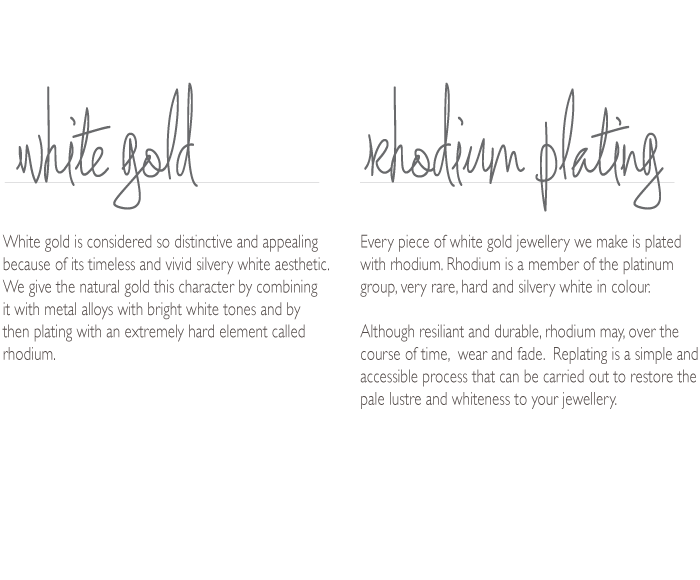 white gold
White gold is considered so distinctive and appealing
because of its timeless and vivid silvery white aesthetic.
We give the natural gold this character by combining
it with metal alloys with bright white tones and by
then plating with an extremely hard element called
rhodium.
rhodium plating
Every piece of white gold jewellery we make is plated
with rhodium. Rhodium is a member of the platinum
group, very rare, hard and silvery white in colour.
Although resiliant and durable, rhodium may, over the
course of time,  wear and fade.  Replating is a simple and
accessible process that can be carried out to restore the
pale lustre and whiteness to your jewellery.